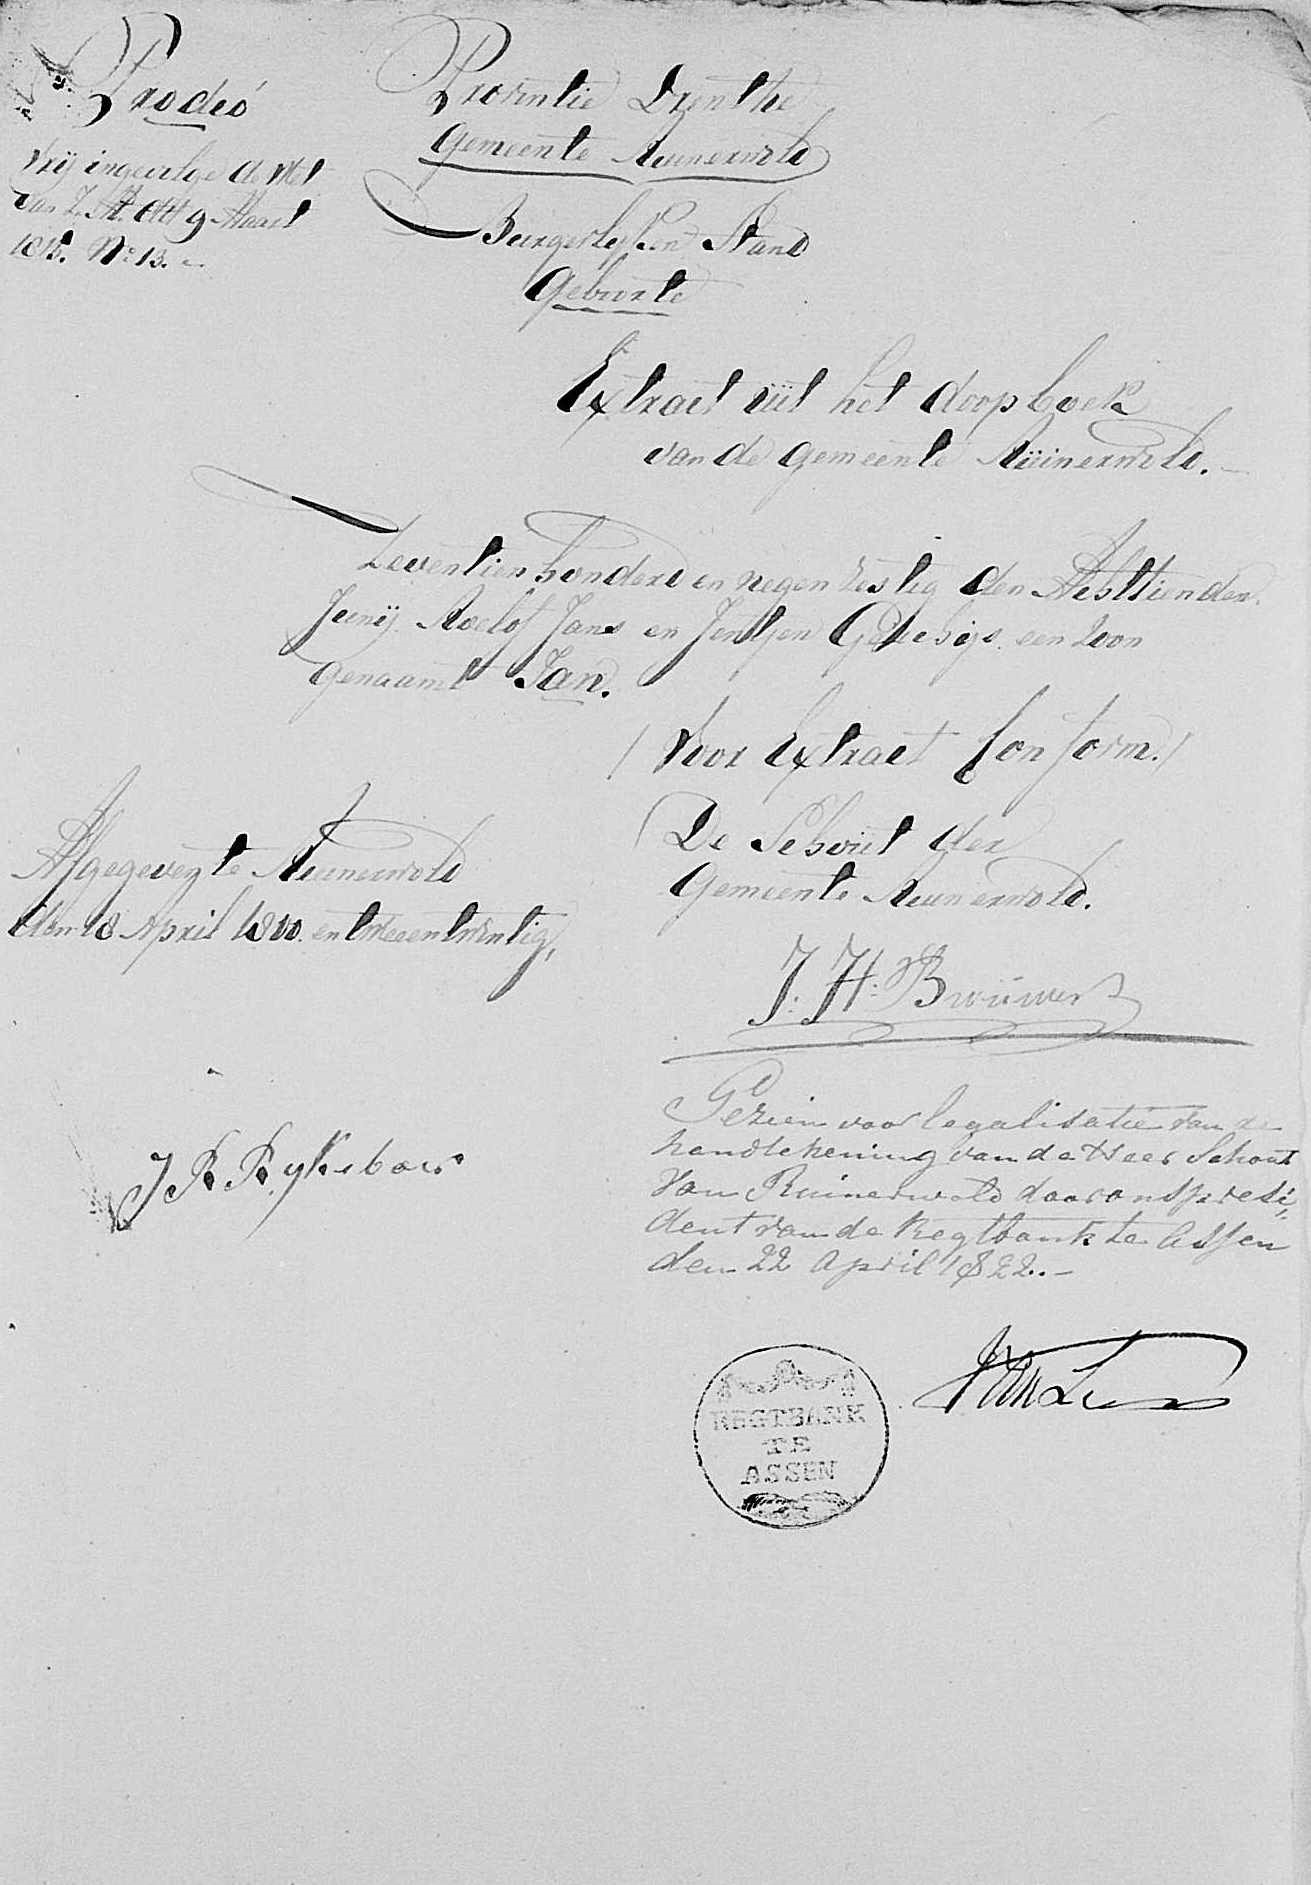 Prodeo
Vrij ingevolge de Wet
van Z. M. 9 Maart
1815. No 13.
Provintie Drenthe
Gemeente Ruinerwold
Burgerlyken Stand
Geboorte
Extract uit het doopboek
van de gemeente Ruinerwold.
Zeventienhonderd en negen zestig den Achttienden
Junij Roelof Jans en Jentjen een Zoon
genaamt Jan.
Voor Extract Conform.
De Schout der
Gemeente Ruinerwold.
Afgegeven te Ruinerwold
den 18 April 1800 en tweeentwintig,
J: H: Brouwer
J R Rykebow
Gezien voor legalisatie van de
handtekening van de Heer Schout
van Ruinerwold door ons presi
dent van de Regtbank te Assen
den 22 April 1822.
REGTBANK
TE
ASSEN